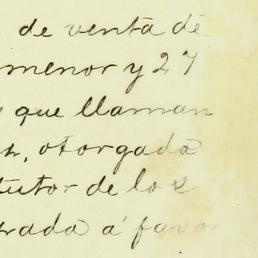 de venta de
menor y 27
que llaman
otorgada
tutor de los
rada á favor